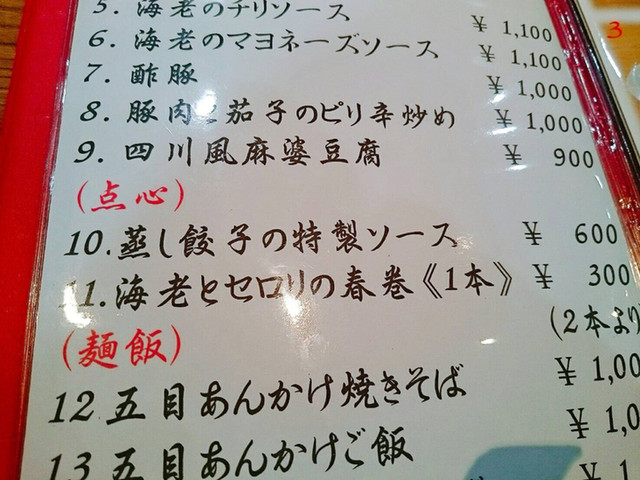 5. 海老のチリソース ¥ 1,100
6. 海老のマヨネーズソース ¥ 1,100
7. 酢豚 ¥ 1,000
8. 豚肉と茄子のピリ辛炒め ¥ 1,000
9. 四川風麻婆豆腐 ¥ 900
(点心)
10. 蒸し餃子の特製ソース ¥ 600
11. 海老とセロリの春巻《1本》 ¥ 300
(2本より
(麺飯)
12 五目あんかけ焼きそば ¥ 1,00
13 五目あんかけご飯 ¥ 1,0
¥ 1
3